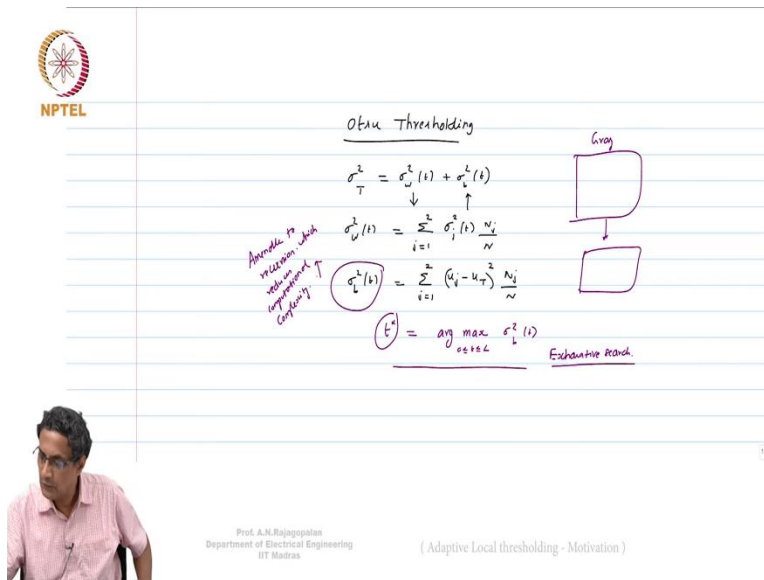 NPTEL
Otsu Thresholding
Gray
σ²_T = σ²_w(t) + σ²_b(t)
↓ ↑
σ²_w(t) = Σ²_{j=1} σ²_j(t) N_j/N
Amenable to
recursion. which
reduces
computational
complexity.
σ²_b(t) = Σ²_{j=1} (μ_j - μ_T)² N_j/N
t* = arg max_{0≤t≤L} σ²_b(t)
Exhaustive search.
Prof. A.N.Rajagopalan
Department of Electrical Engineering
IIT Madras
( Adaptive Local thresholding - Motivation )